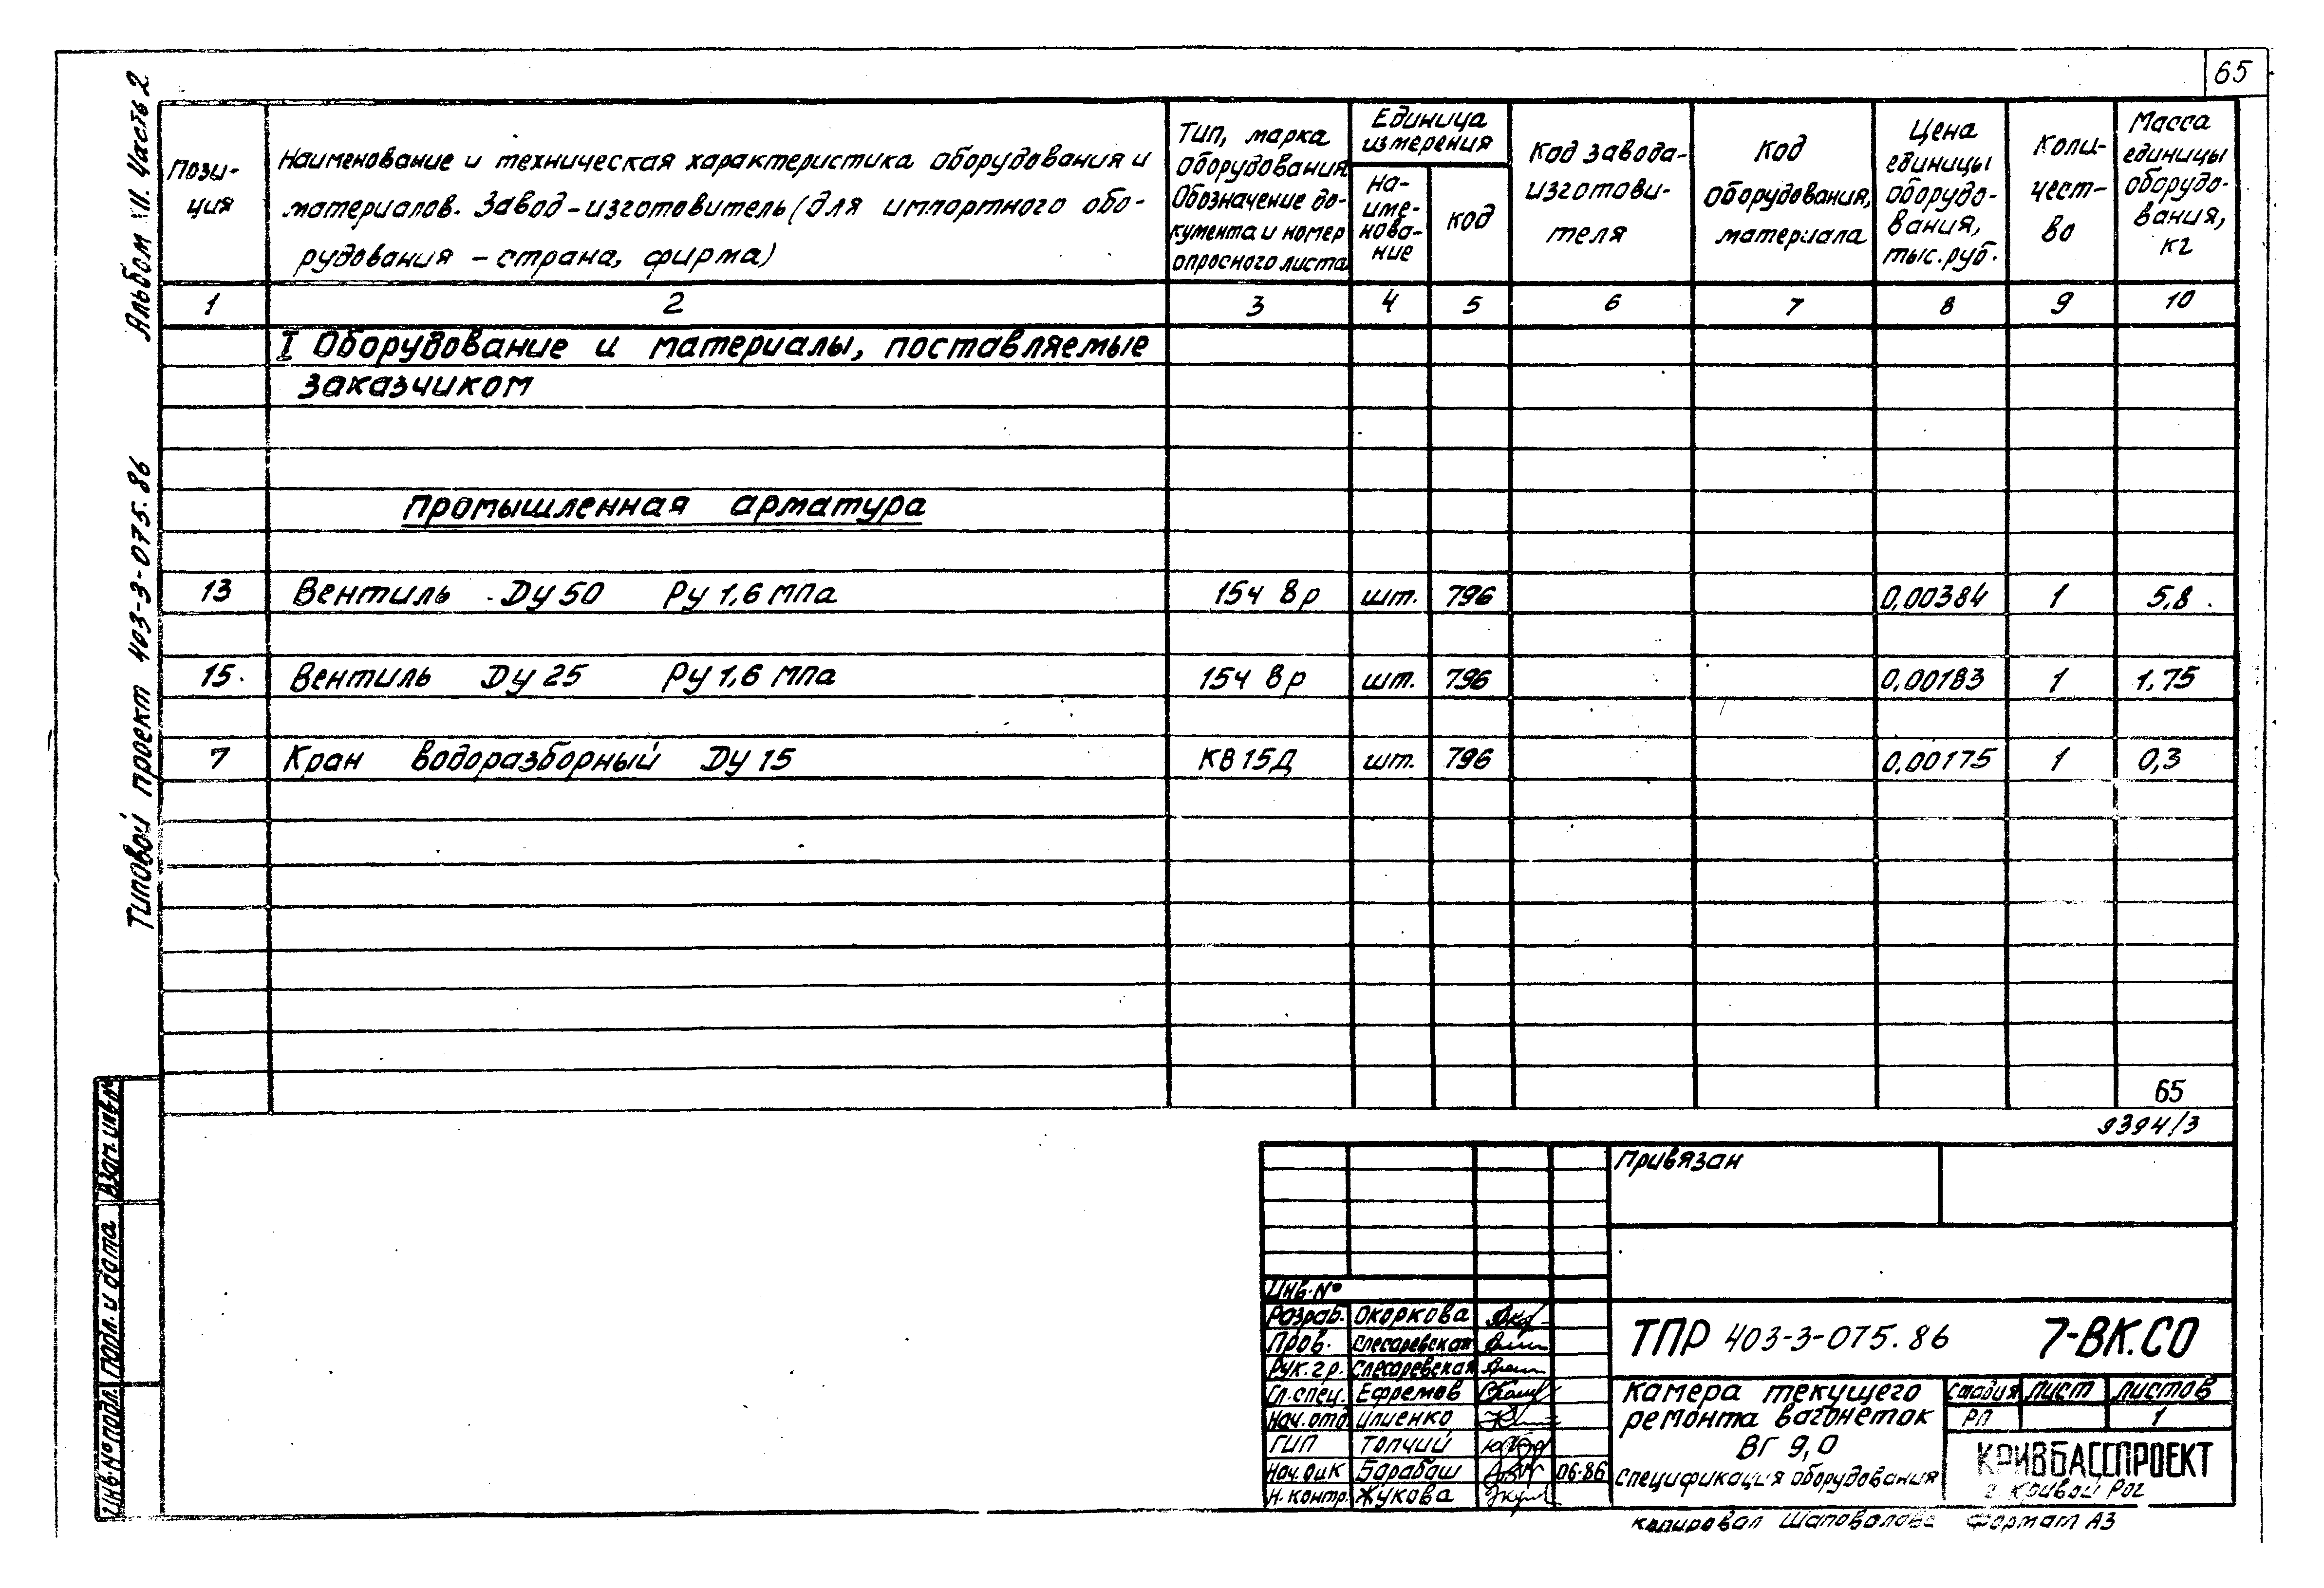 65
Альбом XII. Часть 2
Типовой проект 403-3-075.86
Пози-
ция
Наименование и техническая характеристика оборудования и
материалов. Завод-изготовитель (для импортного обо-
рудования - страна, фирма)
Тип, марка
оборудования
Обозначение до-
кумента и номер
опросного листа
Единица
измерения
На-
име-
нова-
ние
код
Код завода-
изготови-
теля
Код
оборудования,
материала
Цена
единицы
оборудо-
вания,
тыс. руб.
Коли-
чест-
во
Масса
единицы
оборудо-
вания,
кг
1 2 3 4 5 6 7 8 9 10
I Оборудование и материалы, поставляемые
заказчиком
Промышленная арматура
13 Вентиль Ду 50 Ру 1,6 мпа 15ч 8р шт. 796 0,00384 1 5,8
15. Вентиль Ду 25 Ру 1,6 мпа 15ч 8р шт. 796 0,00183 1 1,75
7 Кран водоразборный Ду 15 КВ15Д шт. 796 0,00175 1 0,3
65
9394/3
Привязан
Инв. №
Разраб. Окоркова
Пров. Слесаревская
Рук. гр. Слесаревская
Гл. спец. Ефремов
Нач. отд. Илиенко
ГИП Топчий
Нач. Барабаш 06.86
Н. контр. Жукова
ТПР 403-3-075.86 7-ВК.СО
Камера текущего
ремонта вагонеток
ВГ 9,0
Спецификация оборудования
Стадия Лист Листов
РП 1
КРИВБАССПРОЕКТ
г Кривой Рог
Копировал Шаповалова Формат А3
Взам. инв. №
Подп. и дата
Инв. № подл.